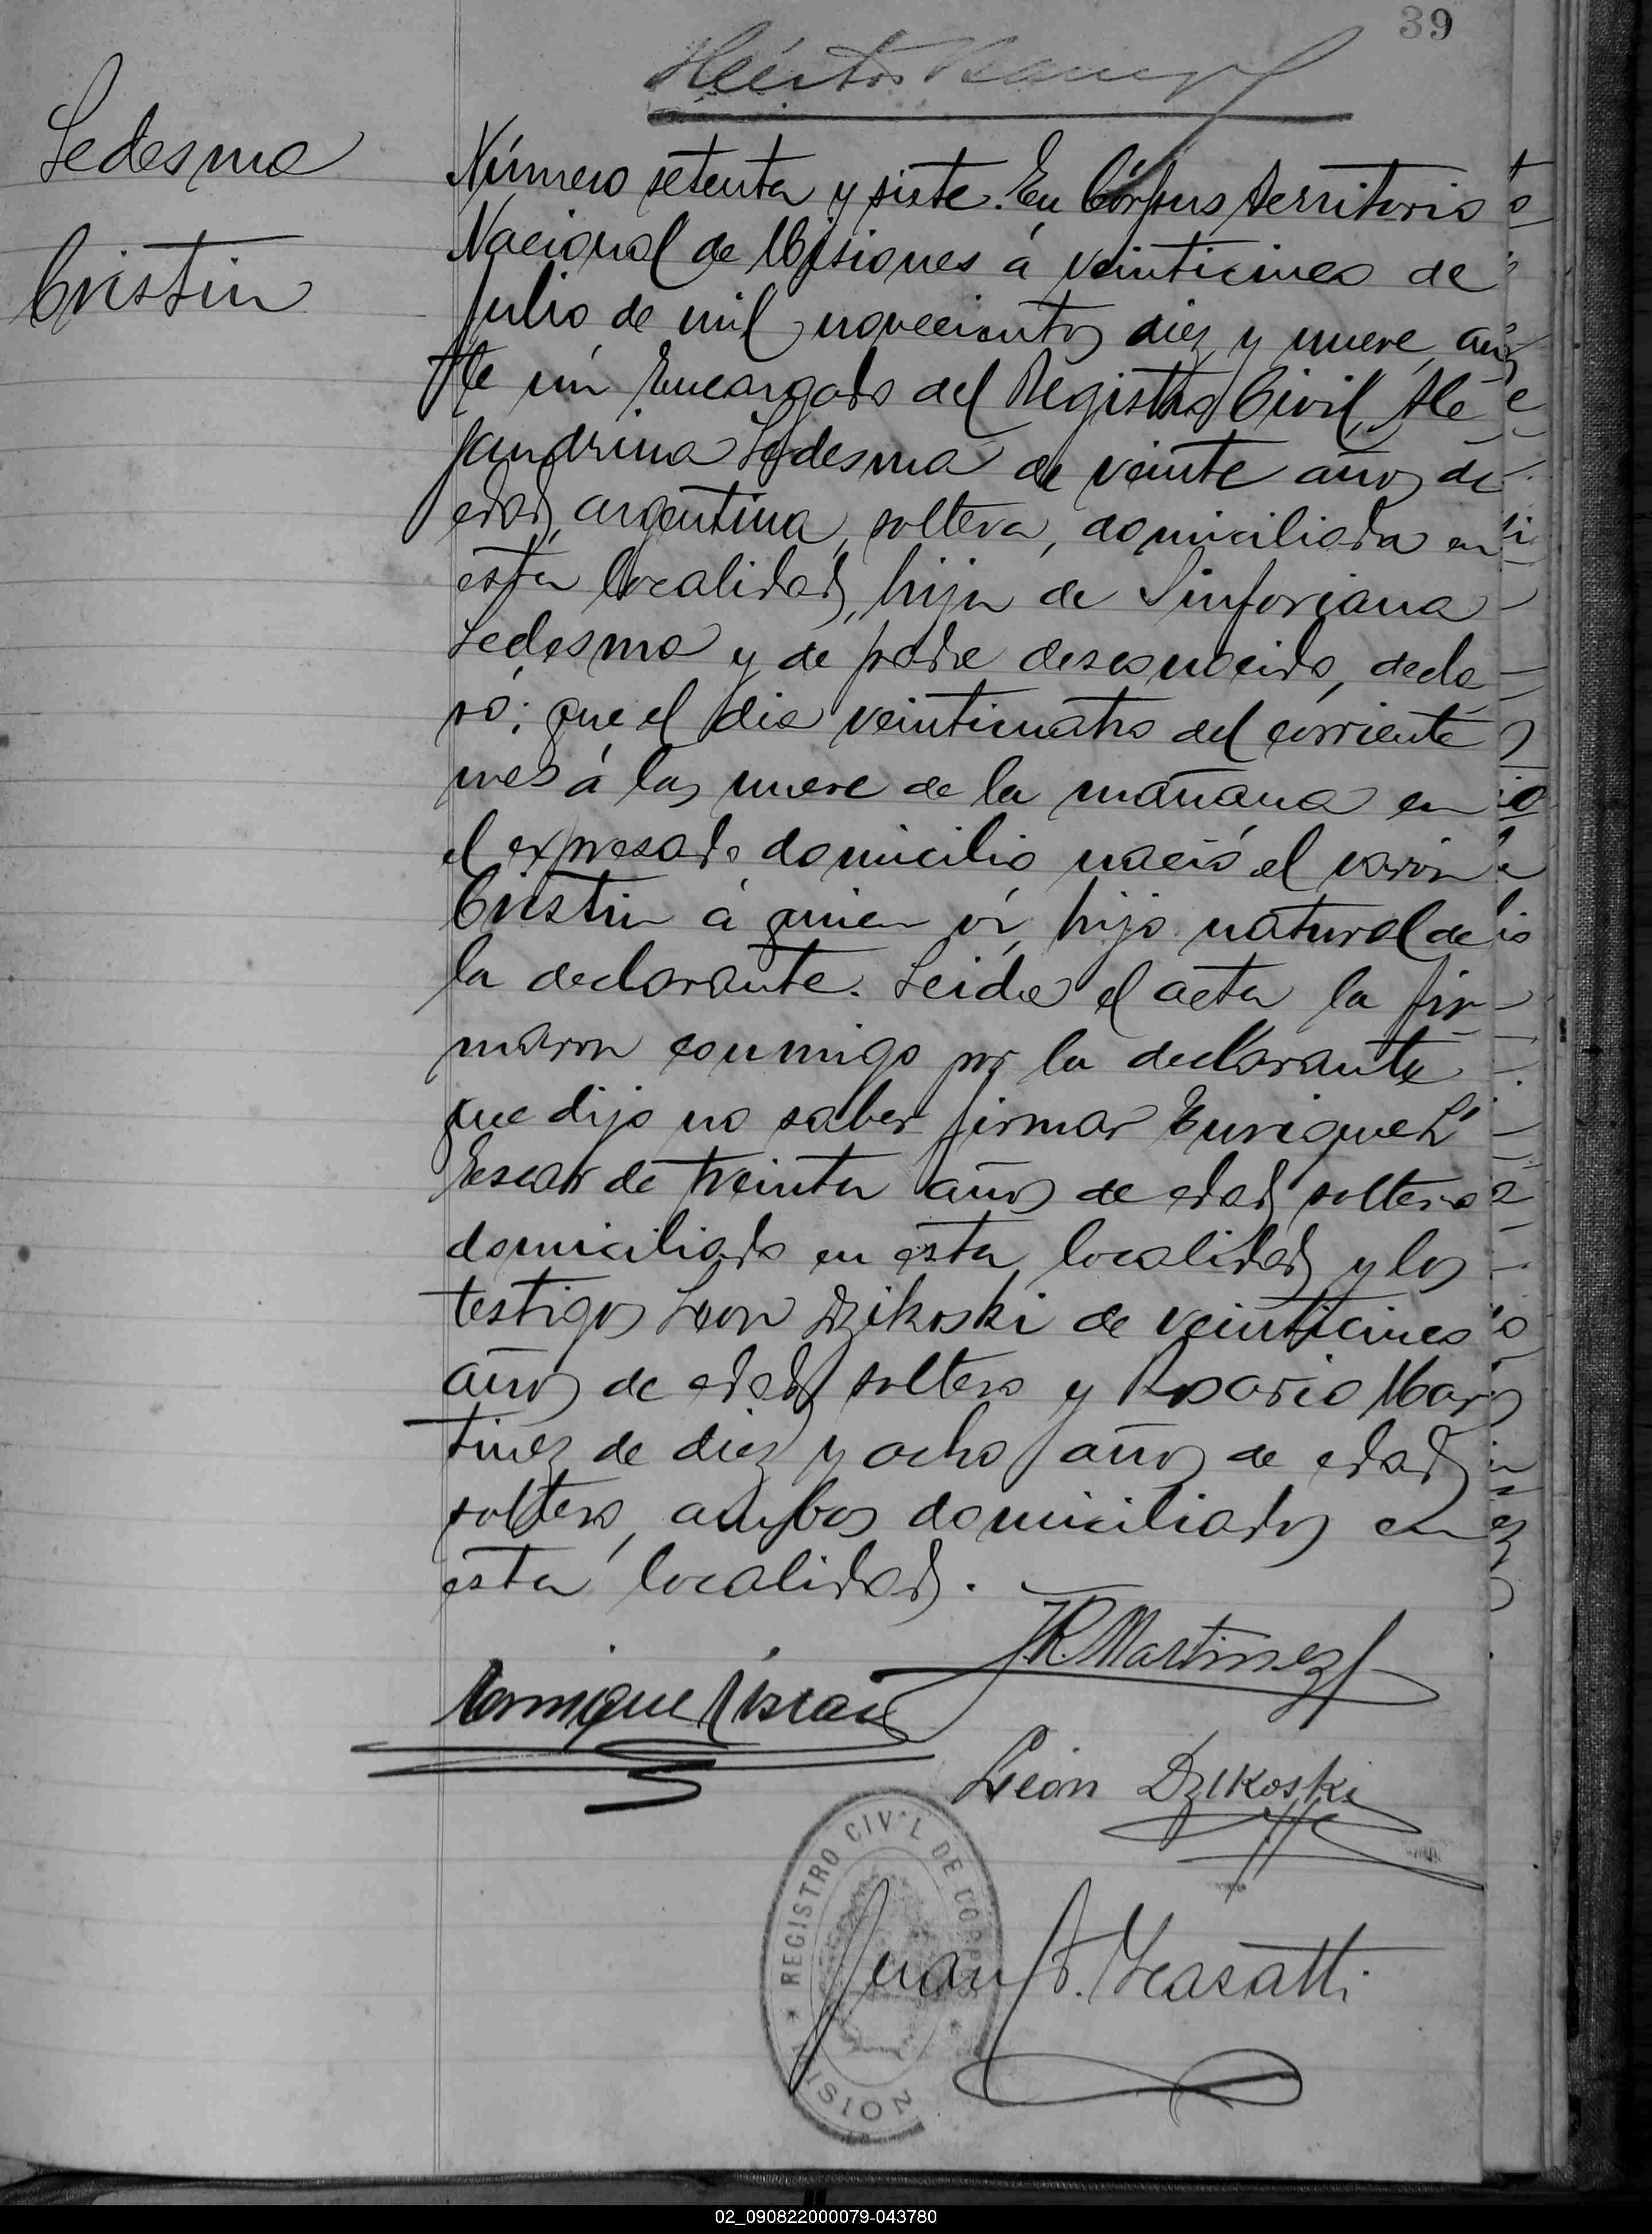 39
Héctor
Ledesma
Cristin
Número setenta y siete. En Córpus Territorio
Nacional de Misiones á veinticinco de
Julio de mil novecientos diez y nueve, an
te mi Encargado del Registro Civil, Ale
jandrina Ledesma de veinte años de
edad, argentina, soltera, domiciliada en
esta localidad, hija de Sinforiana
Ledesma y de padre desconocido, decla
ró: que el dia veinticuatro del corriente
mes á las nueve de la mañana en
el expresado domicilio nació el varon
Cristin á quien ví, hijo natural de
la declarante. Leida el acta la fir
maron conmigo por la declarante
que dijo no saber firmar Enrique L'
Escar de treinta años de edad, soltero
domiciliado en esta localidad y los
testigos Leon Dzikoski de veinticinco
años de edad, soltero y Rosario Mar
tinez de diez y ocho años de edad
soltero, ambos domiciliados en
esta localidad.
J.R. Martinez
Enrique
León Dzikoski
REGISTRO CIVIL DE CORPUS
MISIONES
Juan